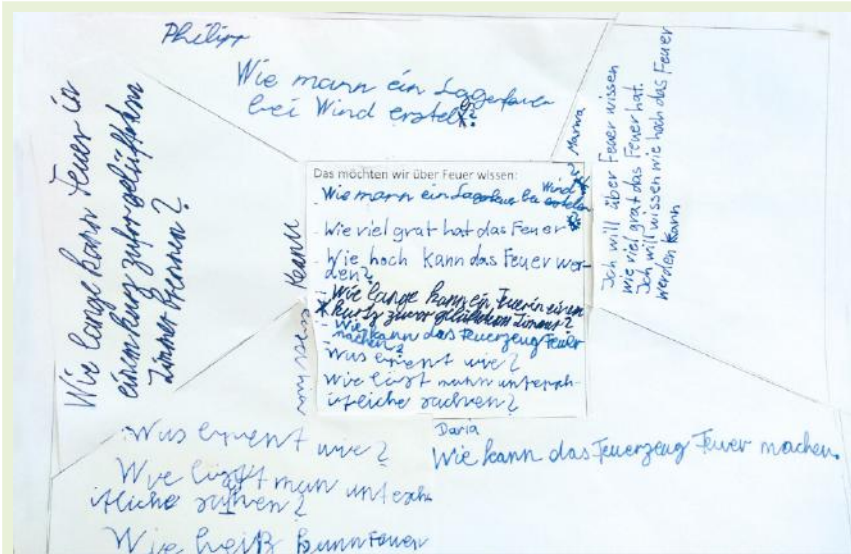 Philipp
Wie mann ein Lagerfeuer
bei Wind erstelt?
Wie lange kann Feuer in
einem kurz zufor gelüftetem
Zimmer brennen?
Keanu
Marwa
Ich will über Feuer wissen
wie viel grat das Feuer hat.
Ich will wissen wie hoch das Feuer
werden kann
Das möchten wir über Feuer wissen:
Wie mann ein Lagerfeuer bei Wind
Wie viel grat hat das Feuer?
Wie hoch kann das Feuer wer-
den?
Wie lange kann ein Feuer in einen
kurtz zuvor gelüfteten Zimmer?
Wie kann das Feuerzeug Feuer
machen?
Was brennt wie?
Wie lüst mann unterch-
itleiche sachen?
Was brennt wie?
Wie man untersch
itliche sachen?
Wie heiß kann Feuer
Daria
Wie kann das Feuerzeug Feuer machen.